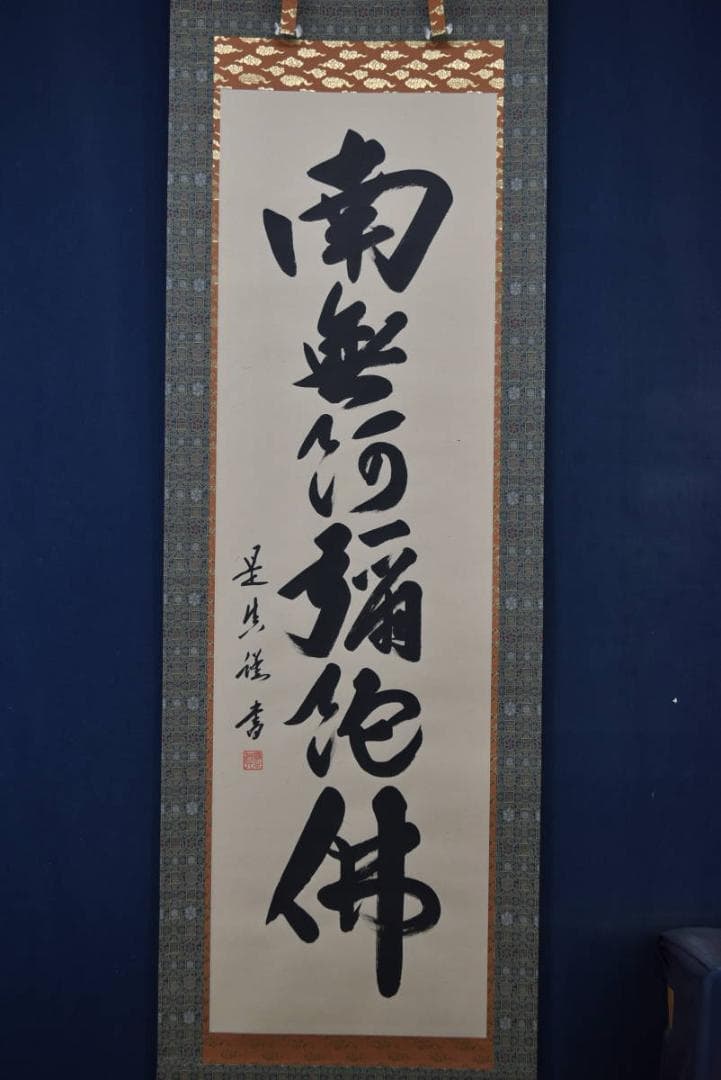 南無阿彌陀佛
是真謹書